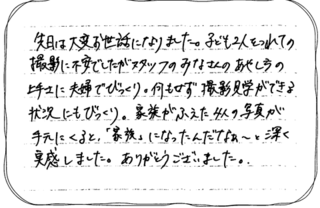 先日は大変お世話になりました。子ども2人をつれての
撮影に不安でしたがスタッフのみなさんのあやし方の
上手さに夫婦でびっくり。何もせず撮影見学ができる
状況にもびっくり。家族がふえた4人の写真が
手元にくると、「家族」になったんだなぁ〜と深く
実感しました。ありがとうございました。